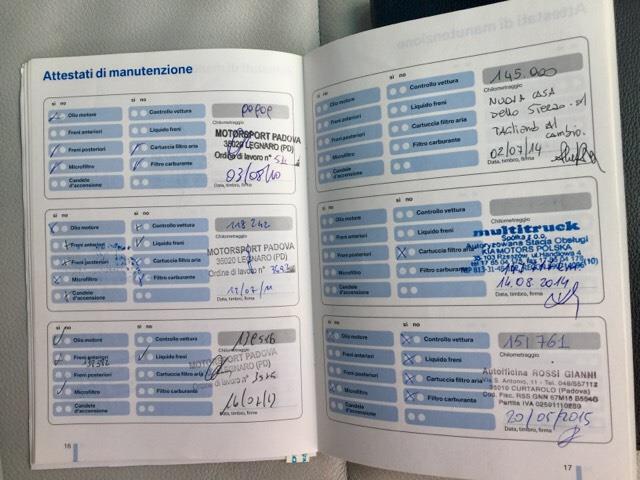 Attestati di manutenzione
sì no sì no
Olio motore Controllo vettura
Chilometraggio
Freni anteriori Liquido freni
MOTORSPORT PADOVA
35020 LEGNARO (PD)
Freni posteriori Cartuccia filtro aria
Ordine di lavoro n°
Microfiltro Filtro carburante
03/08/10
Candele d'accensione
Data, timbro, firma
sì no sì no
118242
Olio motore Controllo vettura
Chilometraggio
Freni anteriori Liquido freni
MOTORSPORT PADOVA
35020 LEGNARO (PD)
Freni posteriori Cartuccia filtro aria
Ordine di lavoro n°
Microfiltro Filtro carburante
12/07/11
Candele d'accensione
Data, timbro, firma
sì no sì no
Olio motore Controllo vettura
Chilometraggio
Freni anteriori Liquido freni
MOTORSPORT PADOVA
35020 LEGNARO (PD)
Freni posteriori Cartuccia filtro aria
di lavoro n°
Microfiltro Filtro carburante
Candele d'accensione
Data, timbro, firma
16
sì no sì no
145.000
Olio motore Controllo vettura
Chilometraggio
Freni anteriori Liquido freni
NUOVA CASA
DELLO STERZO
Freni posteriori Cartuccia filtro aria
TAGLIANDO AL
CAMBIO.
Microfiltro Filtro carburante
02/07/14
Candele d'accensione
Data, timbro, firma
sì no sì no
Olio motore Controllo vettura
Chilometraggio
multitruck
Spółka z o.o.
Freni anteriori Liquido freni
Autoryzowana Stacja Obsługi
KIA MOTORS POLSKA
Freni posteriori Cartuccia filtro aria
35-103 Rzeszów, ul. Handlowa
Microfiltro Filtro carburante
14.08.2014
Candele d'accensione
Data, timbro, firma
sì no sì no
151761
Olio motore Controllo vettura
Chilometraggio
Freni anteriori Liquido freni
Autofficina ROSSI GIANNI
Via S. Antonio, 11 - Tel. 049/557112
Freni posteriori Cartuccia filtro aria
35010 CURTAROLO (Padova)
Cod. Fisc. RSS GNN 57M16 B564G
Microfiltro Filtro carburante
Partita IVA 02591110289
20/05/2015
Candele d'accensione
Data, timbro, firma
17